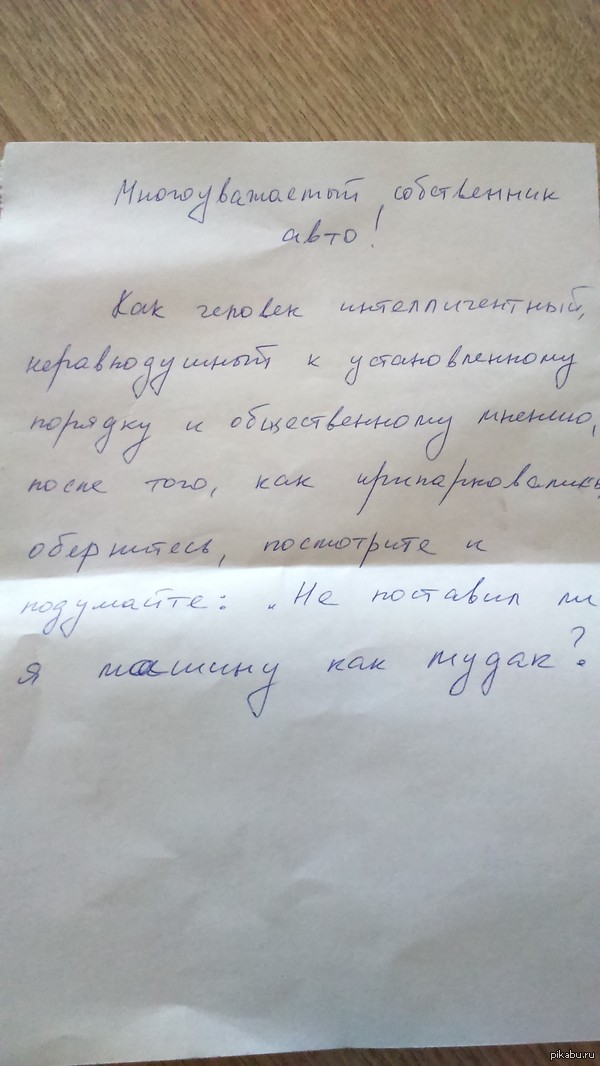 Многоуважаемый собственник
авто!
Как человек интеллигентный,
неравнодушный к установленному
порядку и общественному мнению,
после того, как припарковались,
обернитесь, посмотрите и
подумайте: „Не поставил ли
я машину как мудак?
pikabu.ru